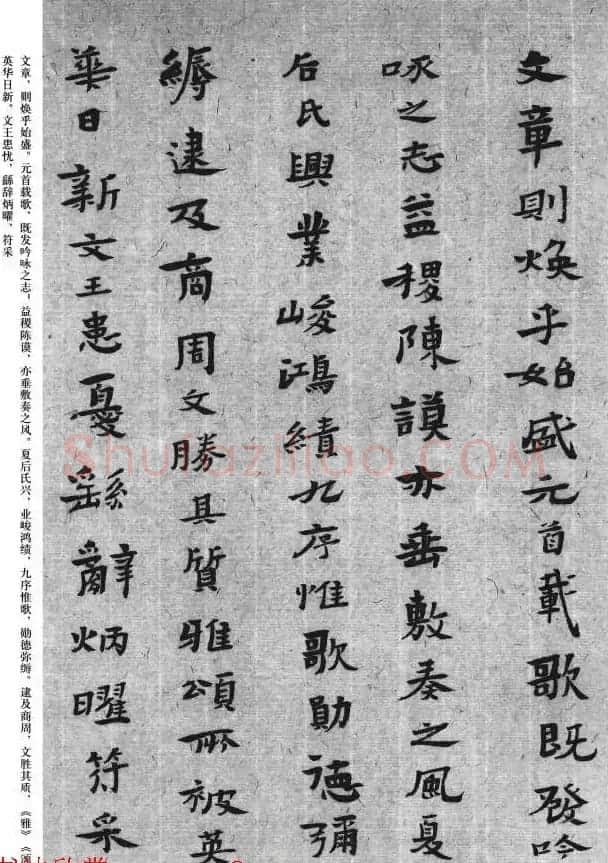 文章則煥乎始盛元首載歌既發吟
咏之志益稷陳謨亦垂敷奏之風夏
后氏興業峻鴻績九序惟歌勛德彌
縟逮及商周文勝其質雅頌所被英
華日新文王患憂繇辭炳曜符采
文章，则焕乎始盛。元首载歌，既发吟咏之志；益稷陈谟，亦垂敷奏之风。夏后氏兴，业峻鸿绩，九序惟歌，勋德弥缛。逮及商周，文胜其质，《雅》《颂
英华日新。文王患忧，繇辞炳曜，符采
Shufaziliao.COM